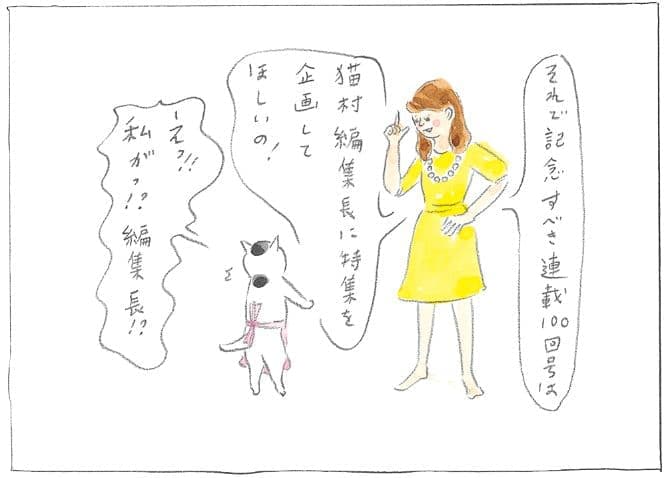 それで記念すべき連載100回号は
猫村編集長に特集を
企画して
ほしいの!
えっ!!
私がっ!?編集長!?